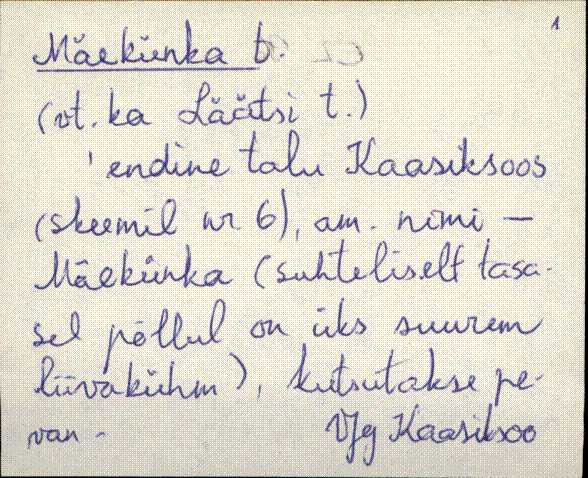 1
Mäekünka t.
(vt. ka Läätsi t.)
'endine talu Kaasiksoos
(skeemil nr 6), am. nimi —
Mäekünka (suhteliselt tasa-
sel põllul on üks suurem
liivakühm), kutsutakse pe-
van -
Vjg Kaasiksoo